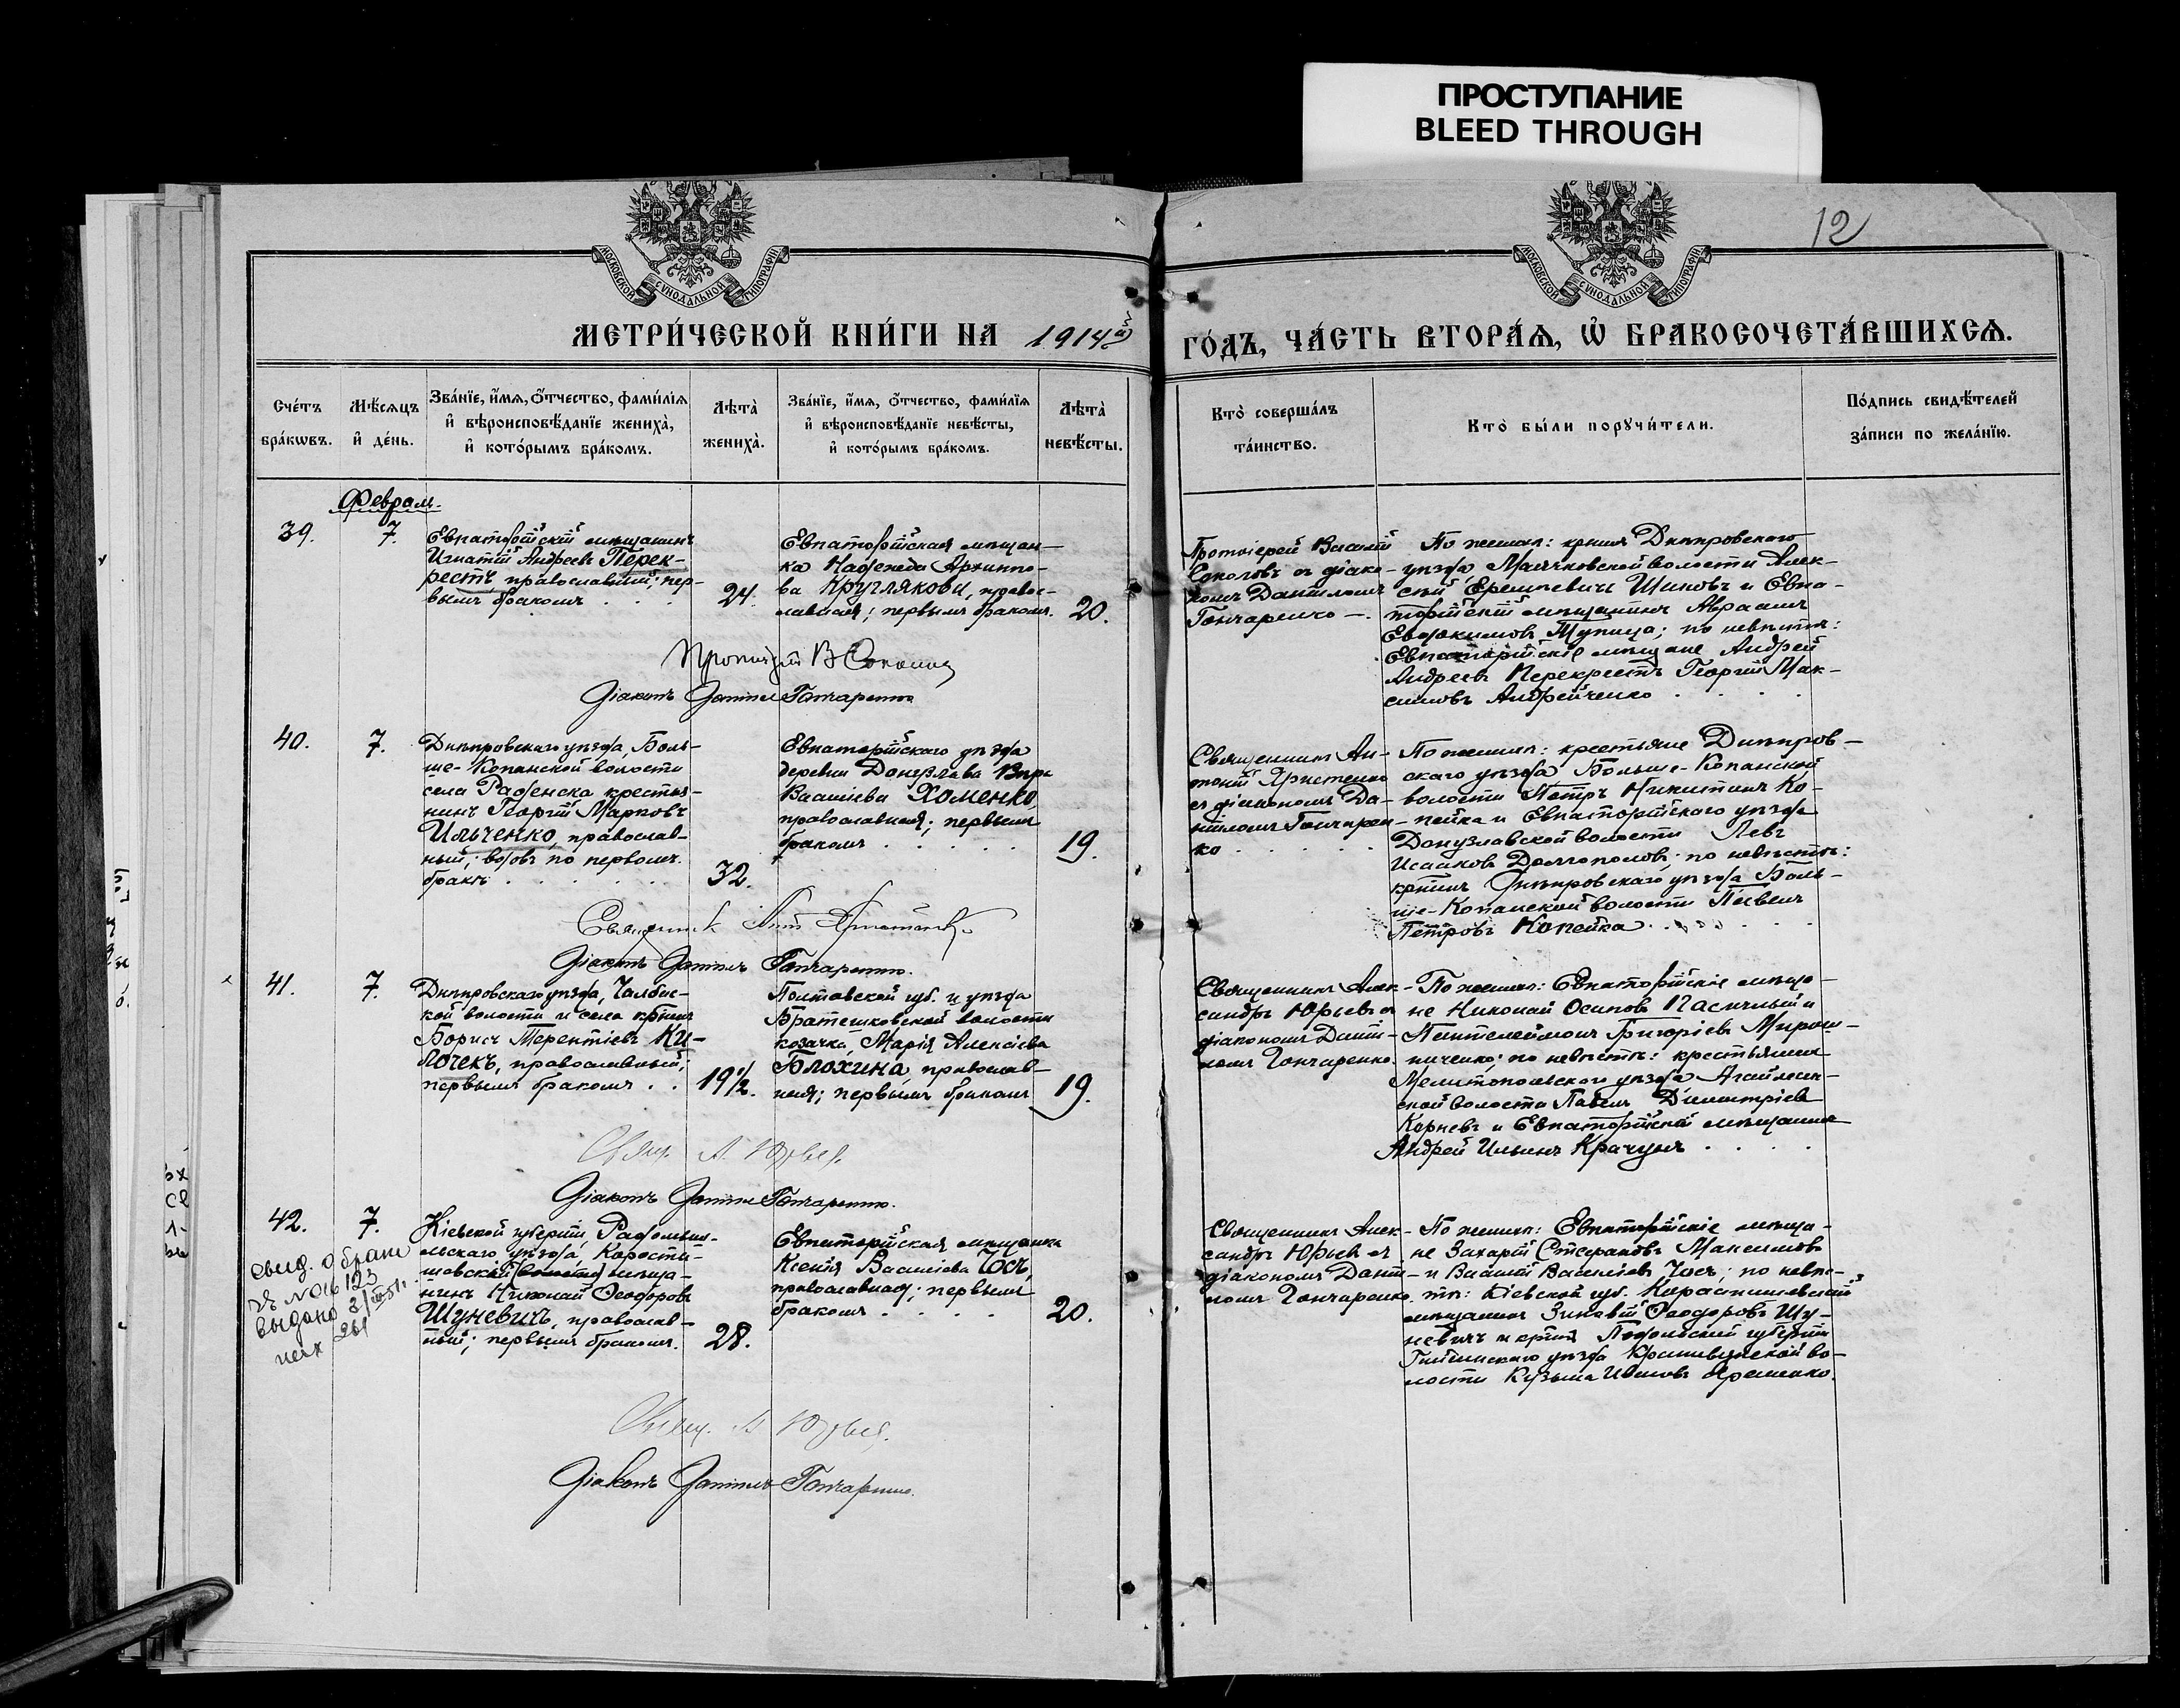 ПРОСТУПАНИЕ
BLEED THROUGH
12
МОСКОВСКОЙ СѴНОДАЛЬНОЙ ТИПОГРАФІИ
МОСКОВСКОЙ СѴНОДАЛЬНОЙ ТИПОГРАФІИ
МЕТРИ́ЧЕСКОЙ КНИ́ГИ НА 1914й
ГО́ДЪ, ЧА́СТЬ ВТОРА́Ѧ, Ѡ҆ БРАКОСОЧЕТА́ВШИХСѦ.
Сче́тъ бра́кѡвъ.
Мѣ́сѧцъ и҆ де́нь.
Зва́нїе, и҆́мѧ, ѻ҆́тчество, фами́лїѧ
и҆ вѣроисповѣ́данїе жениха̀,
и҆ кото́рымъ бра́комъ.
Лѣта̀ жениха̀.
Зва́нїе, и҆́мѧ, ѻ҆́тчество, фами́лїѧ
и҆ вѣроисповѣ́данїе невѣ́сты,
и҆ кото́рымъ бра́комъ.
Лѣта̀ невѣ́сты.
Кто̀ соверша́лъ та́инство.
Кто̀ бы́ли порꙋчи́тели.
По́дпись свидѣ́телей за́писи по жела́нїю.
Феврал.
39.
7.
Евпаторійскій мѣщанинъ
Игнатій Андреевъ Перек-
рестъ, православный; пер-
вымъ бракомъ . . .
24.
Евпаторійская мѣщан-
ка Надежда Архипо-
ва Круглякова, правос-
лавная; первымъ бракомъ.
20.
Протоіерей Василій
Соколовъ съ діако-
номъ Даніиломъ
Гончаренко —.
По женихѣ: кр-нинъ Днѣпровскаго
уѣзда, Маячковской волости Алек-
сѣй Еремѣевичъ Шиловъ и Евпа-
торійскій мѣщанинъ Авраамъ
Евдокимовъ Тупица; по невѣстѣ:
Евпаторійскіе мѣщане Андрей
Андреевъ Перекрестъ Георгій Мак-
симовъ Андрейченко . . . .
Протоіерей В Соколовъ
Діаконъ Даніилъ Гончаренко
40.
7.
Днѣпровскаго уѣзда, Боль-
ше-Копанской волости
села Раденска крестья-
нинъ Георгій Марковъ
Ильченко, православ-
ный; вдовъ по первомъ
бракѣ . . . . .
32.
Евпаторійскаго уѣзда
деревни Донузлава Вѣра
Васильева Хоменко,
православная; первымъ
бракомъ . . . . .
19.
Священникъ Ан-
тоній Христенко
съ діакономъ Да-
ніиломъ Гончарен-
ко . . . . .
По женихѣ: крестьяне Днѣпров-
скаго уѣзда Больше-Копанской
волости Петръ Никитинъ Ко-
пейка и Евпаторійскаго уѣзда
Донузлавской волости Левъ
Исааковъ Долгополовъ; по невѣстѣ:
кр-нинъ Днѣпровскаго уѣзда Боль-
ше-Копанской волости Павелъ
Петровъ Копейка . . . .
Священникъ Ант Христенко
Діаконъ Даніилъ Гончаренко.
41.
7.
Днѣпровскаго уѣзда, Чалбас-
кой волости и села кр-нинъ
Борисъ Терентіевъ Ки-
лочекъ, православный;
первымъ бракомъ . .
19½.
Полтавской губ. и уѣзда
Братешковской волости
козачка, Марія Алексіева
Блохина, православ-
ная; первымъ бракомъ
19.
Священникъ Алек-
сандръ Юрьевъ съ
діакономъ Даніи-
ломъ Гончаренко.
По женихѣ: Евпаторійскіе мѣща-
не Николай Осиповъ Пасичный и
Пантелеймонъ Григоріевъ Мирош-
ниченко; по невѣстѣ: крестьянинъ
Мелитопольскаго уѣзда Агайман-
ской волости Павелъ Димитріевъ
Корневъ и Евпаторійскій мѣщанинъ
Андрей Ильинъ Крачунъ . . . .
Свящ. А. Юрьевъ.
Діаконъ Даніилъ Гончаренко.
42.
7.
Свид. о бракѣ
№ 016123
выдано
исх 261
Кіевской губерніи, Радомыс-
льскаго уѣзда, Корости-
шевскій (волости) мѣща-
нинъ Николай Ѳеодоровъ
Шуневичъ, православ-
ный; первымъ бракомъ.
28.
Евпаторійская мѣщанка
Ксенія Васильева Чосъ,
православная; первымъ
бракомъ . . . .
20.
Священникъ Алек-
сандръ Юрьевъ съ
діакономъ Даніи-
ломъ Гончаренко.
По женихѣ: Евпаторійскіе мѣща-
не Захарій Стефановъ Максимовъ
и Василій Васильевъ Чосъ; по невѣс-
тѣ: Кіевской губ. Коростишевскій
мѣщанинъ Зиновій Ѳеодоровъ Шу-
невичъ и кр-нинъ Подольской губерніи
уѣзда во-
лости Кузьма Ивановъ Яременко.
Свящ. А Юрьевъ.
Діаконъ Даніилъ Гончаренко.